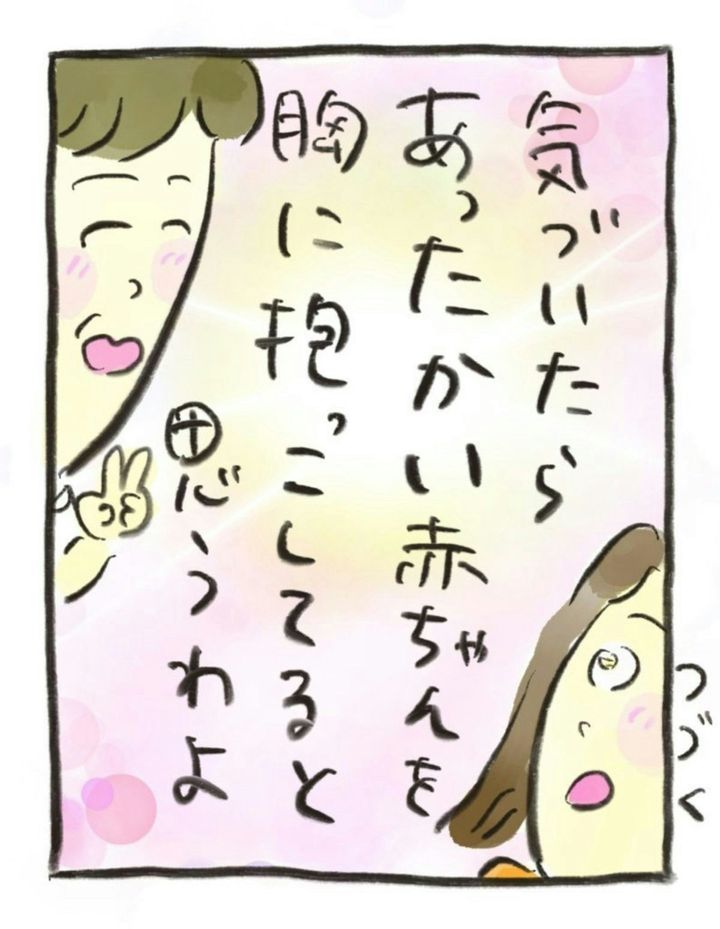 気づいたら
あったかい赤ちゃんを
胸に抱っこしてると
思うわよ
つづく